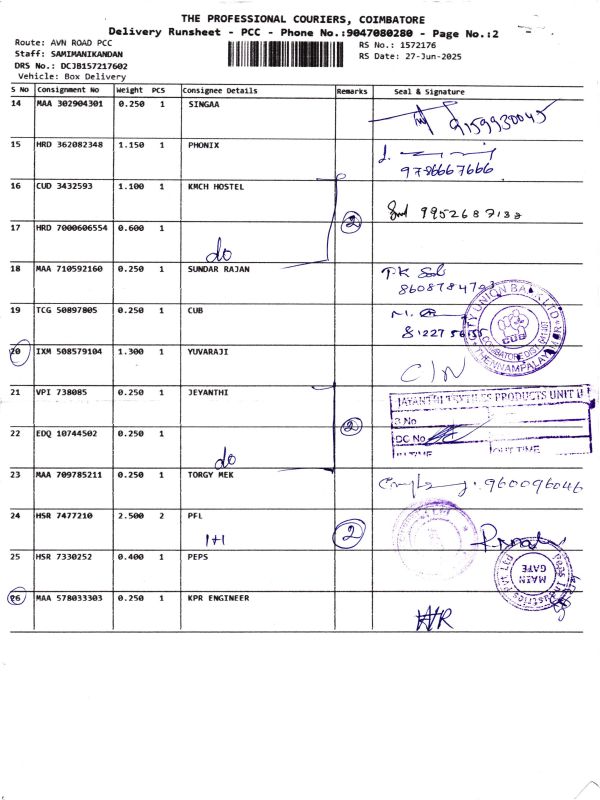 THE PROFESSIONAL COURIERS, COIMBATORE
Delivery Runsheet - PCC - Phone No.:9047080280 - Page No.:2
Route: AVN ROAD PCC
Staff: SAMIMANIKANDAN
DRS No.: DCJB157217602
Vehicle: Box Delivery
RS No.: 1572176
RS Date: 27-Jun-2025
S No Consignment No Weight PCS Consignee Details Remarks Seal & Signature
14 MAA 302904301 0.250 1 SINGAA
9159930045
15 HRD 362082348 1.150 1 PHONIX
9786667666
16 CUD 3432593 1.100 1 KMCH HOSTEL
2
17 HRD 7000606554 0.600 1
do
18 MAA 710592160 0.250 1 SUNDAR RAJAN
19 TCG 50897805 0.250 1 CUB
CITY UNION BANK LTD
CUB
COIMBATORE DIST. 641 107
THENNAMPALAYAM
20 IXM 508579104 1.300 1 YUVARAJI
C/N
21 VPI 738085 0.250 1 JEYANTHI
2
JAYANTHI TEXTILES PRODUCTS UNIT II
S.No
DC No
IN TIME OUT TIME
22 EDQ 10744502 0.250 1
do
23 MAA 709785211 0.250 1 TORGY MEK
24 HSR 7477210 2.500 2 PFL
1+1
2
25 HSR 7330252 0.400 1 PEPS
MAIN
GATE
26 MAA 578033303 0.250 1 KPR ENGINEER